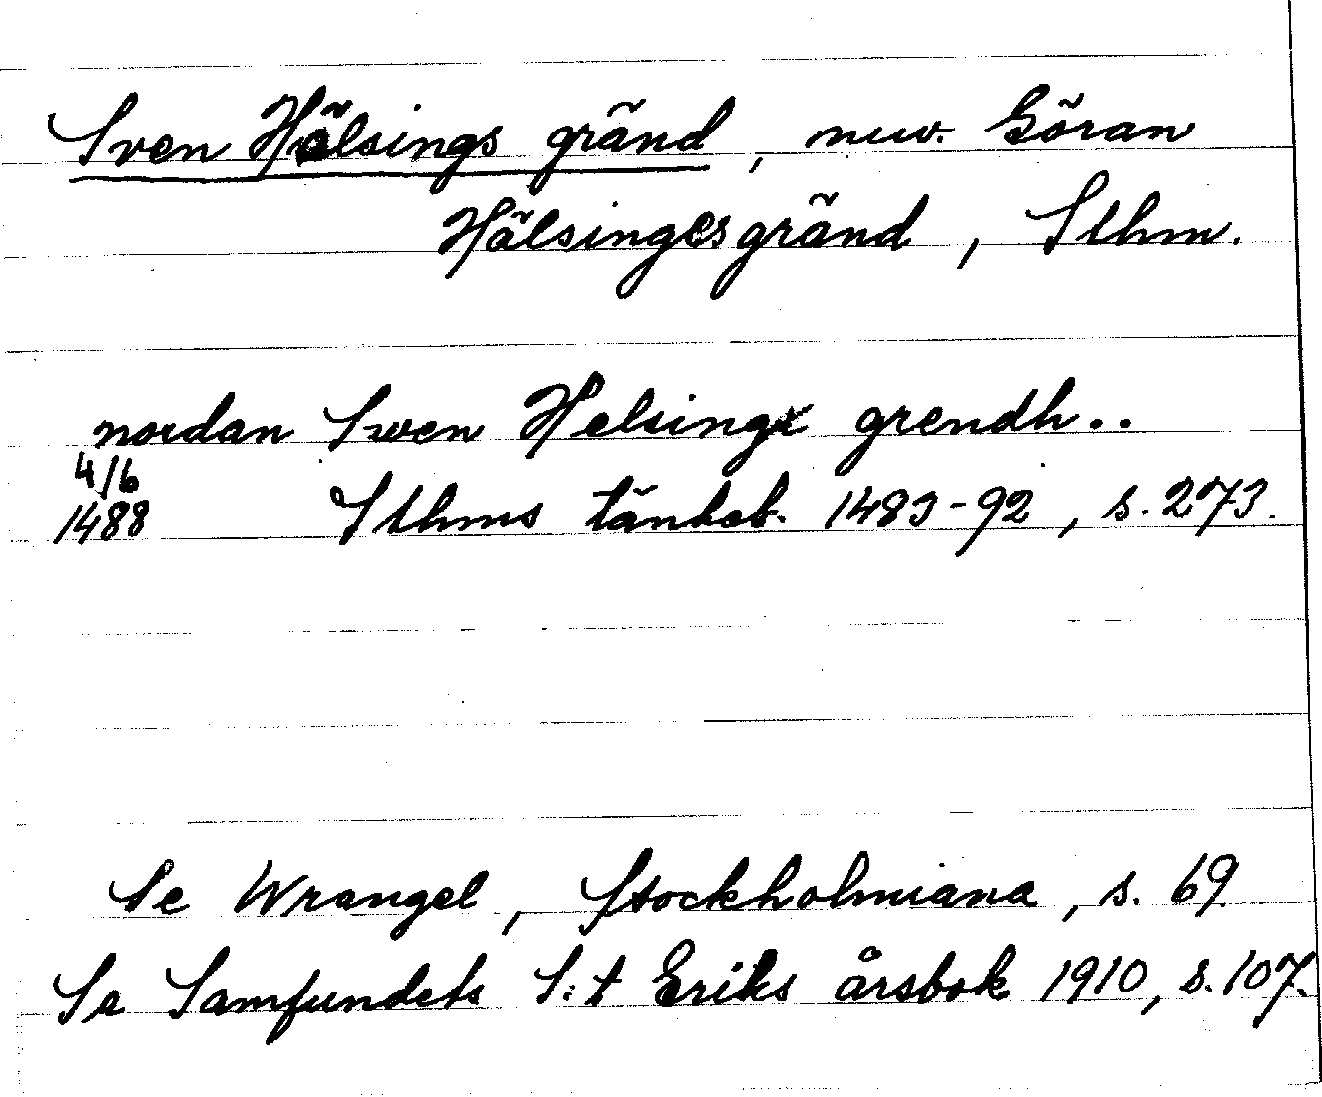 Sven Hälsings gränd, nuv. Göran
Hälsinges gränd, Sthm.
nordan Swen Helsingx grendh..
4/6
1488 Sthms tänkeb. 1483-92, s. 273.
Se Wrangel, Stockholmiana, s. 69
Se Samfundets S:t Eriks årsbok 1910, s. 107.